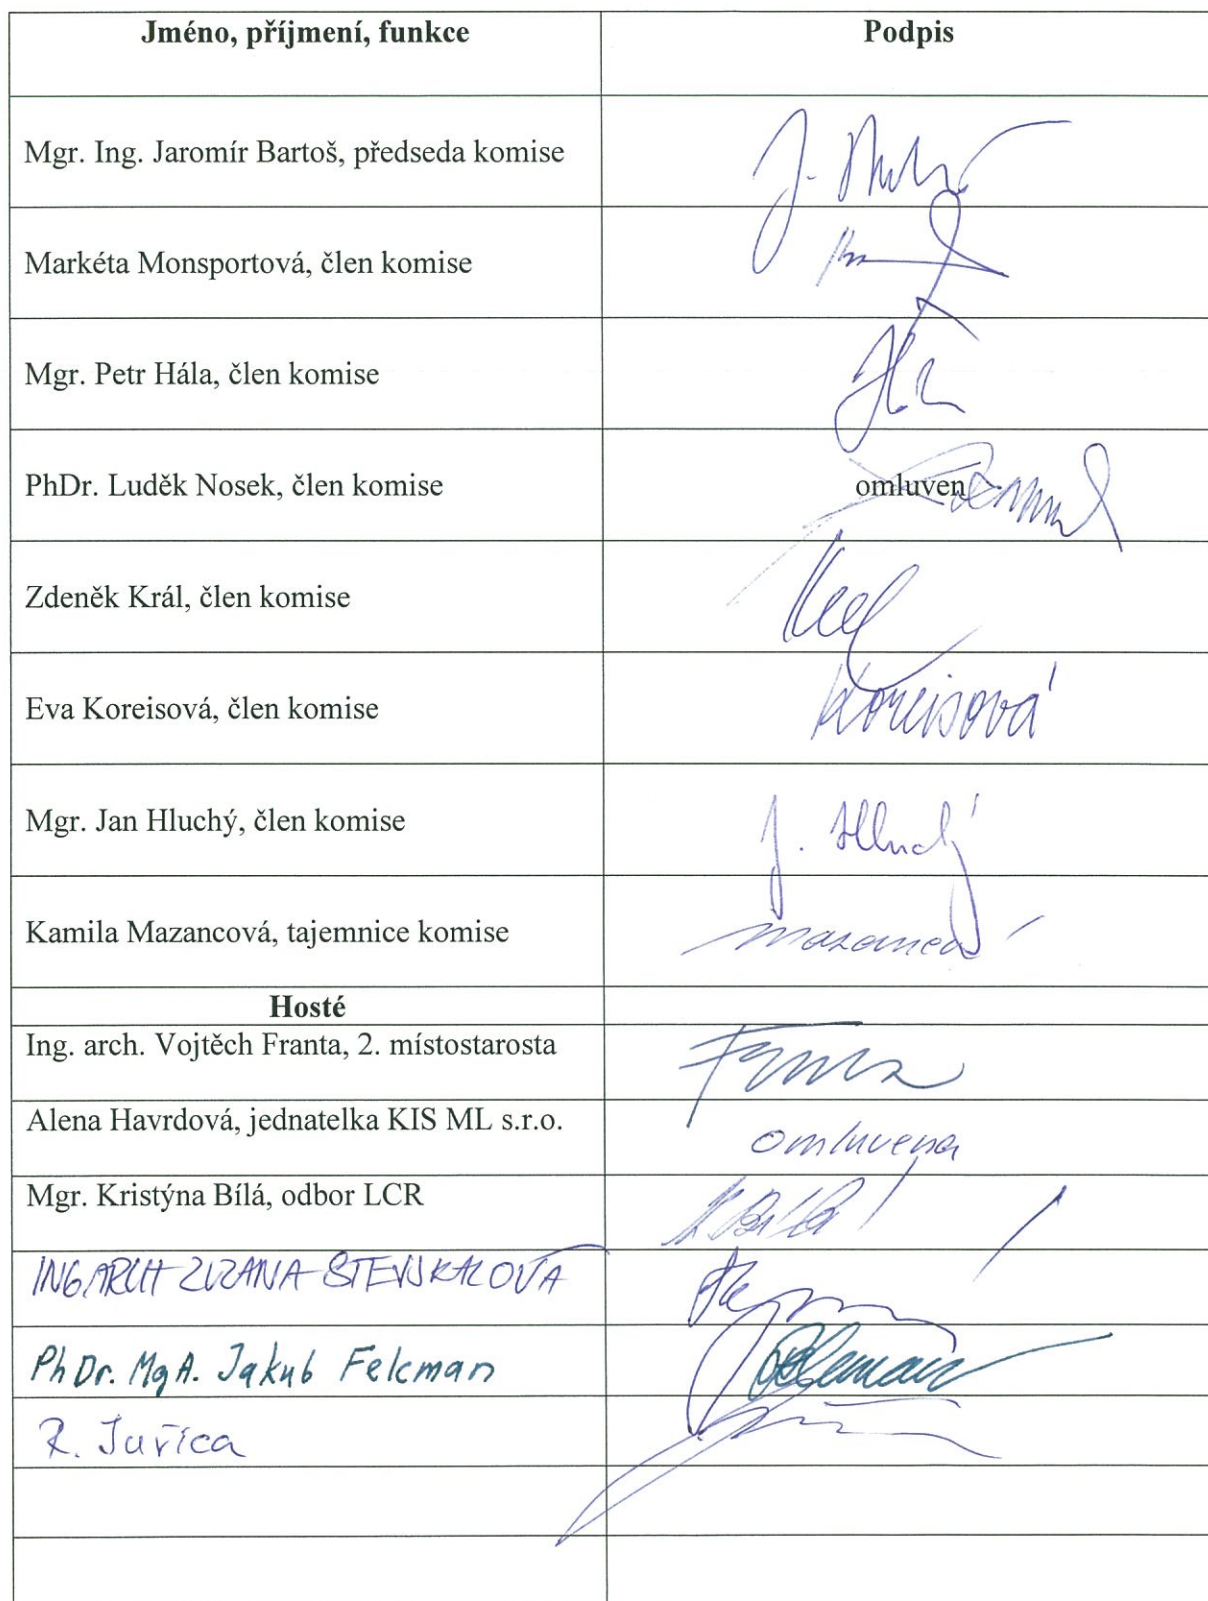 Jméno, příjmení, funkce Podpis
Mgr. Ing. Jaromír Bartoš, předseda komise
Markéta Monsportová, člen komise
Mgr. Petr Hála, člen komise
PhDr. Luděk Nosek, člen komise omluven
Zdeněk Král, člen komise
Eva Koreisová, člen komise Koreisová
Mgr. Jan Hluchý, člen komise J. Hluchý
Kamila Mazancová, tajemnice komise
Hosté
Ing. arch. Vojtěch Franta, 2. místostarosta
Alena Havrdová, jednatelka KIS ML s.r.o. omluvena
Mgr. Kristýna Bílá, odbor LCR
ING ARCH ZUZANA
PhDr. MgA. Jakub Felcman
R. Juřica